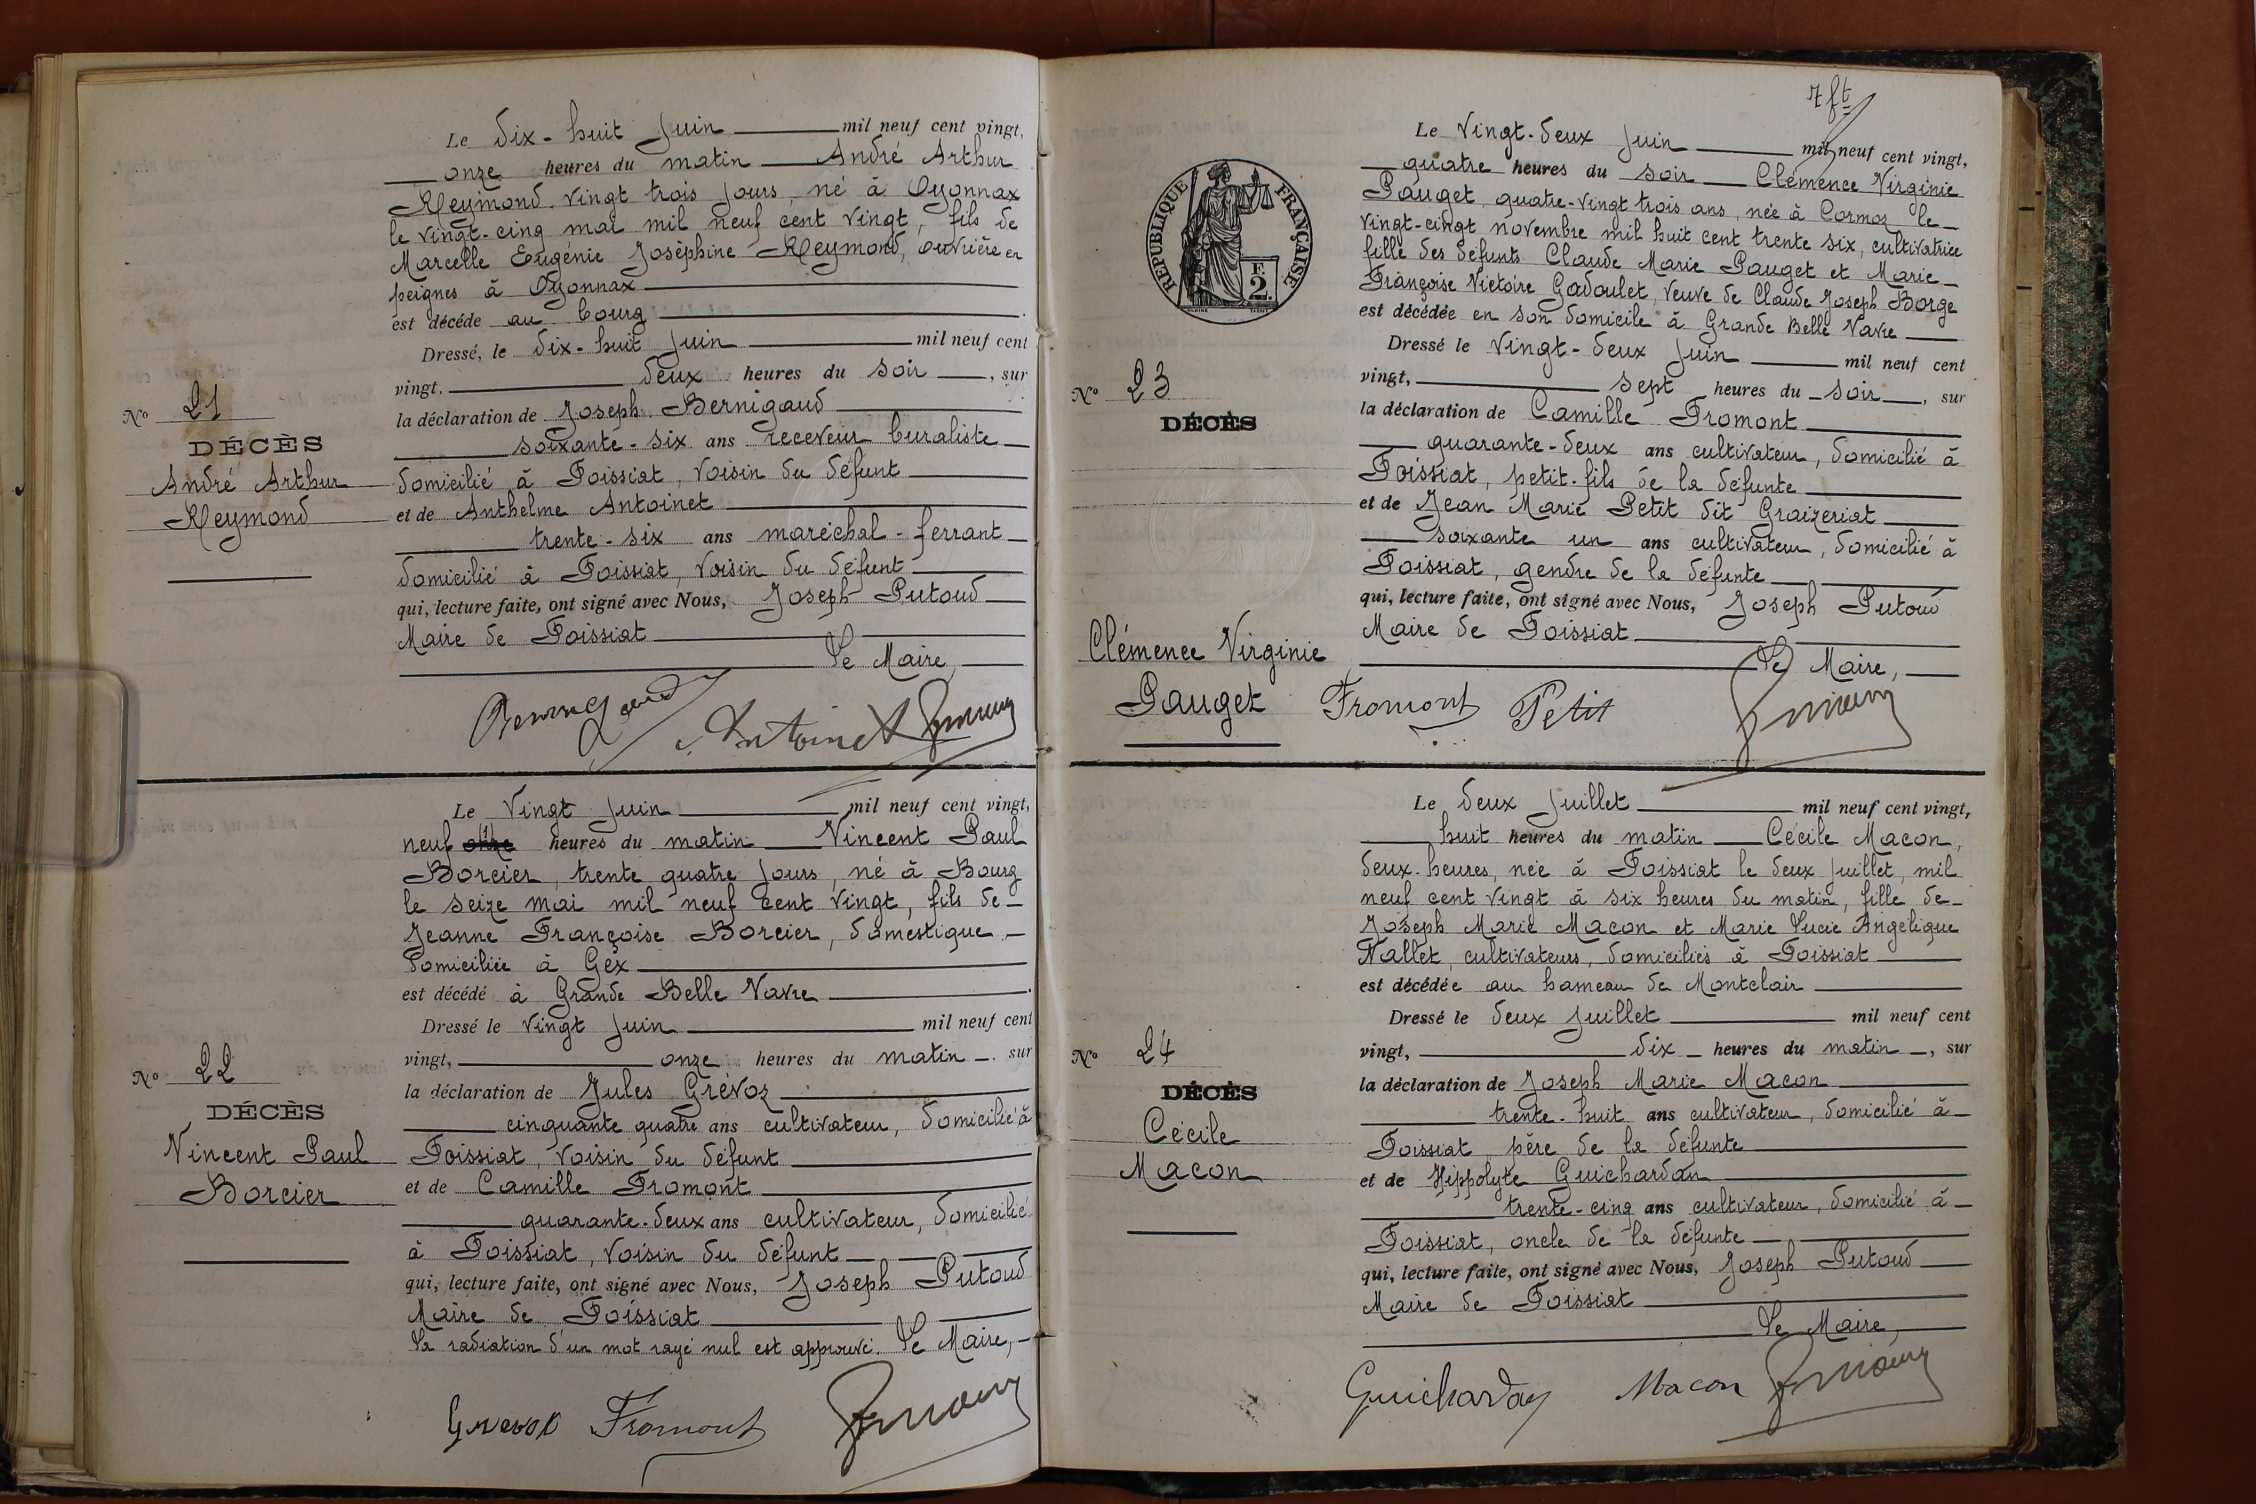 Le dix-huit Juin mil neuf cent vingt,
onze heures du matin André Arthur
Reymond, vingt trois jours, né à Oyonnax
le vingt-cinq mai mil neuf cent vingt, fils de
Marcelle Eugénie Joséphine Reymond, ouvrière en
peignes à Oyonnax
est décédé au bourg
Dressé, le dix-huit Juin mil neuf cent
vingt, deux heures du soir, sur
la déclaration de Joseph Bernigaud
soixante-six ans receveur buraliste
domicilié à Foissiat, voisin du défunt
et de Anthelme Antoinet
trente-six ans maréchal-ferrant
domicilié à Foissiat, voisin du défunt
qui, lecture faite, ont signé avec Nous, Joseph Putoud
Maire de Foissiat
Le Maire,
No 21
DÉCÈS
André Arthur
Reymond
Bernigaud Antoinet
Le Vingt Juin mil neuf cent vingt,
neuf onze heures du matin Vincent Paul
Borcier, trente quatre jours, né à Bourg
le seize mai mil neuf cent vingt, fils de
Jeanne Françoise Borcier, domestique
domiciliée à Gex
est décédé à Grande Belle Navre
Dressé le vingt Juin mil neuf cent
vingt, onze heures du matin, sur
la déclaration de Jules Grévoz
cinquante quatre ans cultivateur, domicilié à
Foissiat, voisin du défunt
et de Camille Fromont
quarante-deux ans cultivateur, domicilié
à Foissiat, voisin du défunt
qui, lecture faite, ont signé avec Nous, Joseph Putoud
Maire de Foissiat
La radiation d'un mot rayé nul est approuvé. Le Maire,
No 22
DÉCÈS
Vincent Paul
Borcier
Grevoz Fromont
7 ft
RÉPUBLIQUE FRANÇAISE
F.
2.
Le Vingt-deux Juin mil neuf cent vingt,
quatre heures du soir Clémence Virginie
Pauget, quatre-vingt trois ans, née à Cormoz le
vingt-cinqt novembre mil huit cent trente six, cultivatrice
fille des défunts Claude Marie Pauget et Marie
Françoise Victoire Gadoulet, veuve de Claude Joseph Borge
est décédée en son domicile à Grande Belle Navre
Dressé le vingt-deux Juin mil neuf cent
vingt, sept heures du soir, sur
la déclaration de Camille Fromont
quarante-deux ans cultivateur, domicilié à
Foissiat, petit-fils de la défunte
et de Jean Marie Petit dit Graizeriat
soixante un ans cultivateur, domicilié à
Foissiat, gendre de la défunte
qui, lecture faite, ont signé avec Nous, Joseph Putoud
Maire de Foissiat
Le Maire,
No 23
DÉCÈS
Clémence Virginie
Pauget
Fromont Petit
Le deux Juillet mil neuf cent vingt,
huit heures du matin Cécile Macon,
deux heures, née à Foissiat le deux Juillet, mil
neuf cent vingt à six heures du matin, fille de
Joseph Marie Macon et Marie Lucie Angélique
Nallet, cultivateurs, domiciliés à Foissiat
est décédée au hameau de Montclair
Dressé le deux Juillet mil neuf cent
vingt, dix heures du matin, sur
la déclaration de Joseph Marie Macon
trente-huit ans cultivateur, domicilié à
Foissiat, père de la défunte
et de Hippolyte Guichardan
trente-cinq ans cultivateur, domicilié à
Foissiat, oncle de la défunte
qui, lecture faite, ont signé avec Nous, Joseph Putoud
Maire de Foissiat
Le Maire,
No 24
DÉCÈS
Cécile
Macon
Guichardan Macon